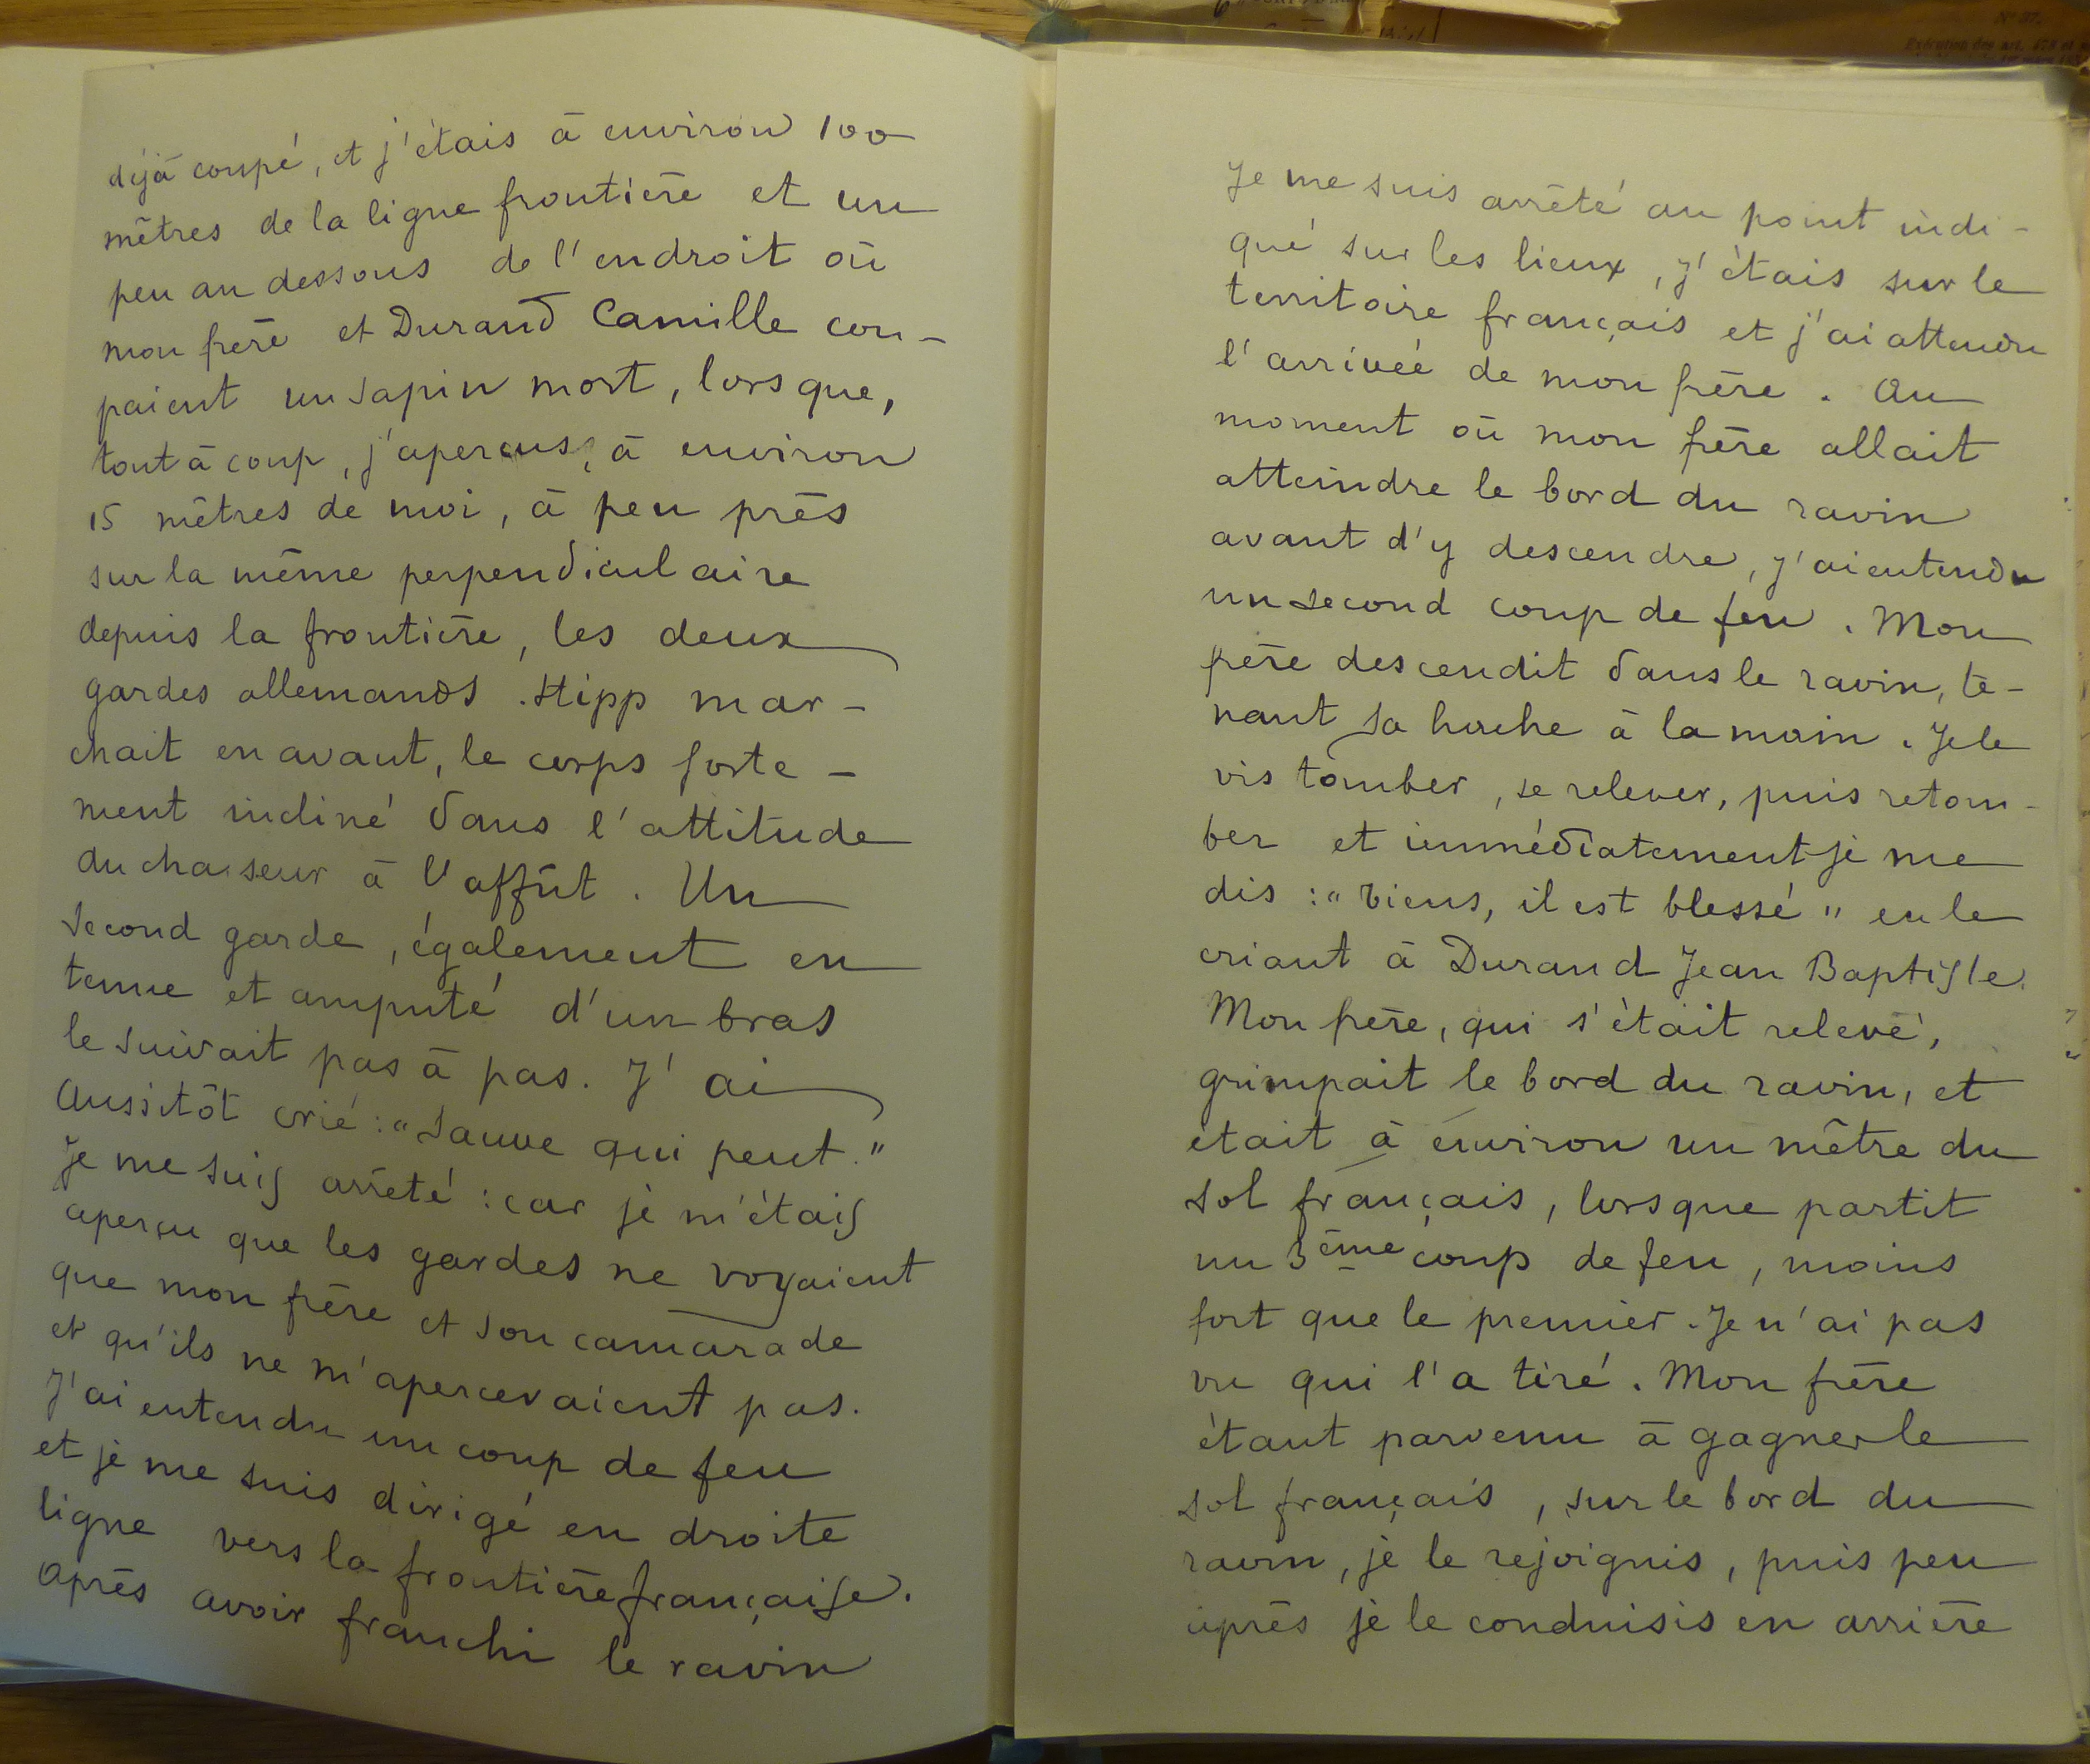 déjà coupé, et j'étais à environ 100
mètres de la ligne frontière et un
peu au dessous de l'endroit où
mon frère et Durand Camille cou-
paient un sapin mort, lorsque,
tout à coup, j'aperçus, à environ
15 mètres de moi, à peu près
sur la même perpendiculaire
depuis la frontière, les deux
gardes allemands. Hipp mar-
chait en avant, le corps forte-
ment incliné dans l'attitude
du chasseur à l'affût. Un
second garde, également en
tenue et amputé d'un bras
le suivait pas à pas. J'ai
aussitôt crié: "Sauve qui peut."
Je me suis arrêté: car je m'étais
aperçu que les gardes ne voyaient
que mon frère et son camarade
et qu'ils ne m'apercevaient pas.
J'ai entendu un coup de feu
et je me suis dirigé en droite
ligne vers la frontière française.
Après avoir franchi le ravin
Je me suis arrêté au point indi-
qué sur les lieux, j'étais sur le
territoire français et j'ai attendu
l'arrivée de mon frère. Au
moment où mon frère allait
atteindre le bord du ravin
avant d'y descendre, j'ai entendu
un second coup de feu. Mon
frère descendit dans le ravin, te-
nant sa hache à la main. Je le
vis tomber, se relever, puis retom-
ber et immédiatement je me
dis: "Tiens, il est blessé" en le
criant à Durand Jean Baptiste.
Mon frère, qui s'était relevé,
grimpait le bord du ravin, et
était à environ un mètre du
sol français, lorsque partit
un 3ème coup de feu, moins
fort que le premier. Je n'ai pas
vu qui l'a tiré. Mon frère
étant parvenu à gagner le
sol français, sur le bord du
ravin, je le rejoignis, puis peu
après je le conduisis en arrière